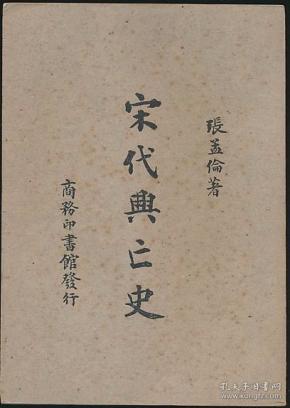 張孟倫著
宋代興亡史
商務印書館發行
孔夫子旧书网